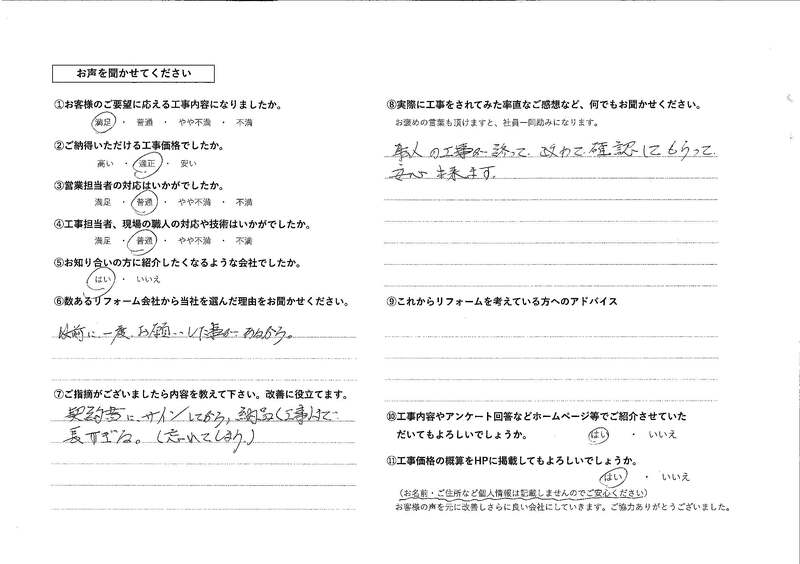 お声を聞かせてください
①お客様のご要望に応える工事内容になりましたか。
満足 ・ 普通 ・ やや不満 ・ 不満
②ご納得いただける工事価格でしたか。
高い ・ 適正 ・ 安い
③営業担当者の対応はいかがでしたか。
満足 ・ 普通 ・ やや不満 ・ 不満
④工事担当者、現場の職人の対応や技術はいかがでしたか。
満足 ・ 普通 ・ やや不満 ・ 不満
⑤お知り合いの方に紹介したくなるような会社でしたか。
はい ・ いいえ
⑥数あるリフォーム会社から当社を選んだ理由をお聞かせください。
以前に、一度、お願いした事があるから。
⑦ご指摘がございましたら内容を教えて下さい。改善に役立てます。
契約書に、サインしてから、納品(工事)まで
長すぎる。(忘れてしまう)
⑧実際に工事をされてみた率直なご感想など、何でもお聞かせください。
お褒めの言葉も頂けますと、社員一同励みになります。
の工事が終って、改めて確認してもらって、
安心 出来ます。
⑨これからリフォームを考えている方へのアドバイス
⑩工事内容やアンケート回答などホームページ等でご紹介させていた
だいてもよろしいでしょうか。 はい ・ いいえ
⑪工事価格の概算をHPに掲載してもよろしいでしょうか。
はい ・ いいえ
(お名前・ご住所など個人情報は記載しませんのでご安心ください)
お客様の声を元に改善しさらに良い会社にしていきます。ご協力ありがとうございました。